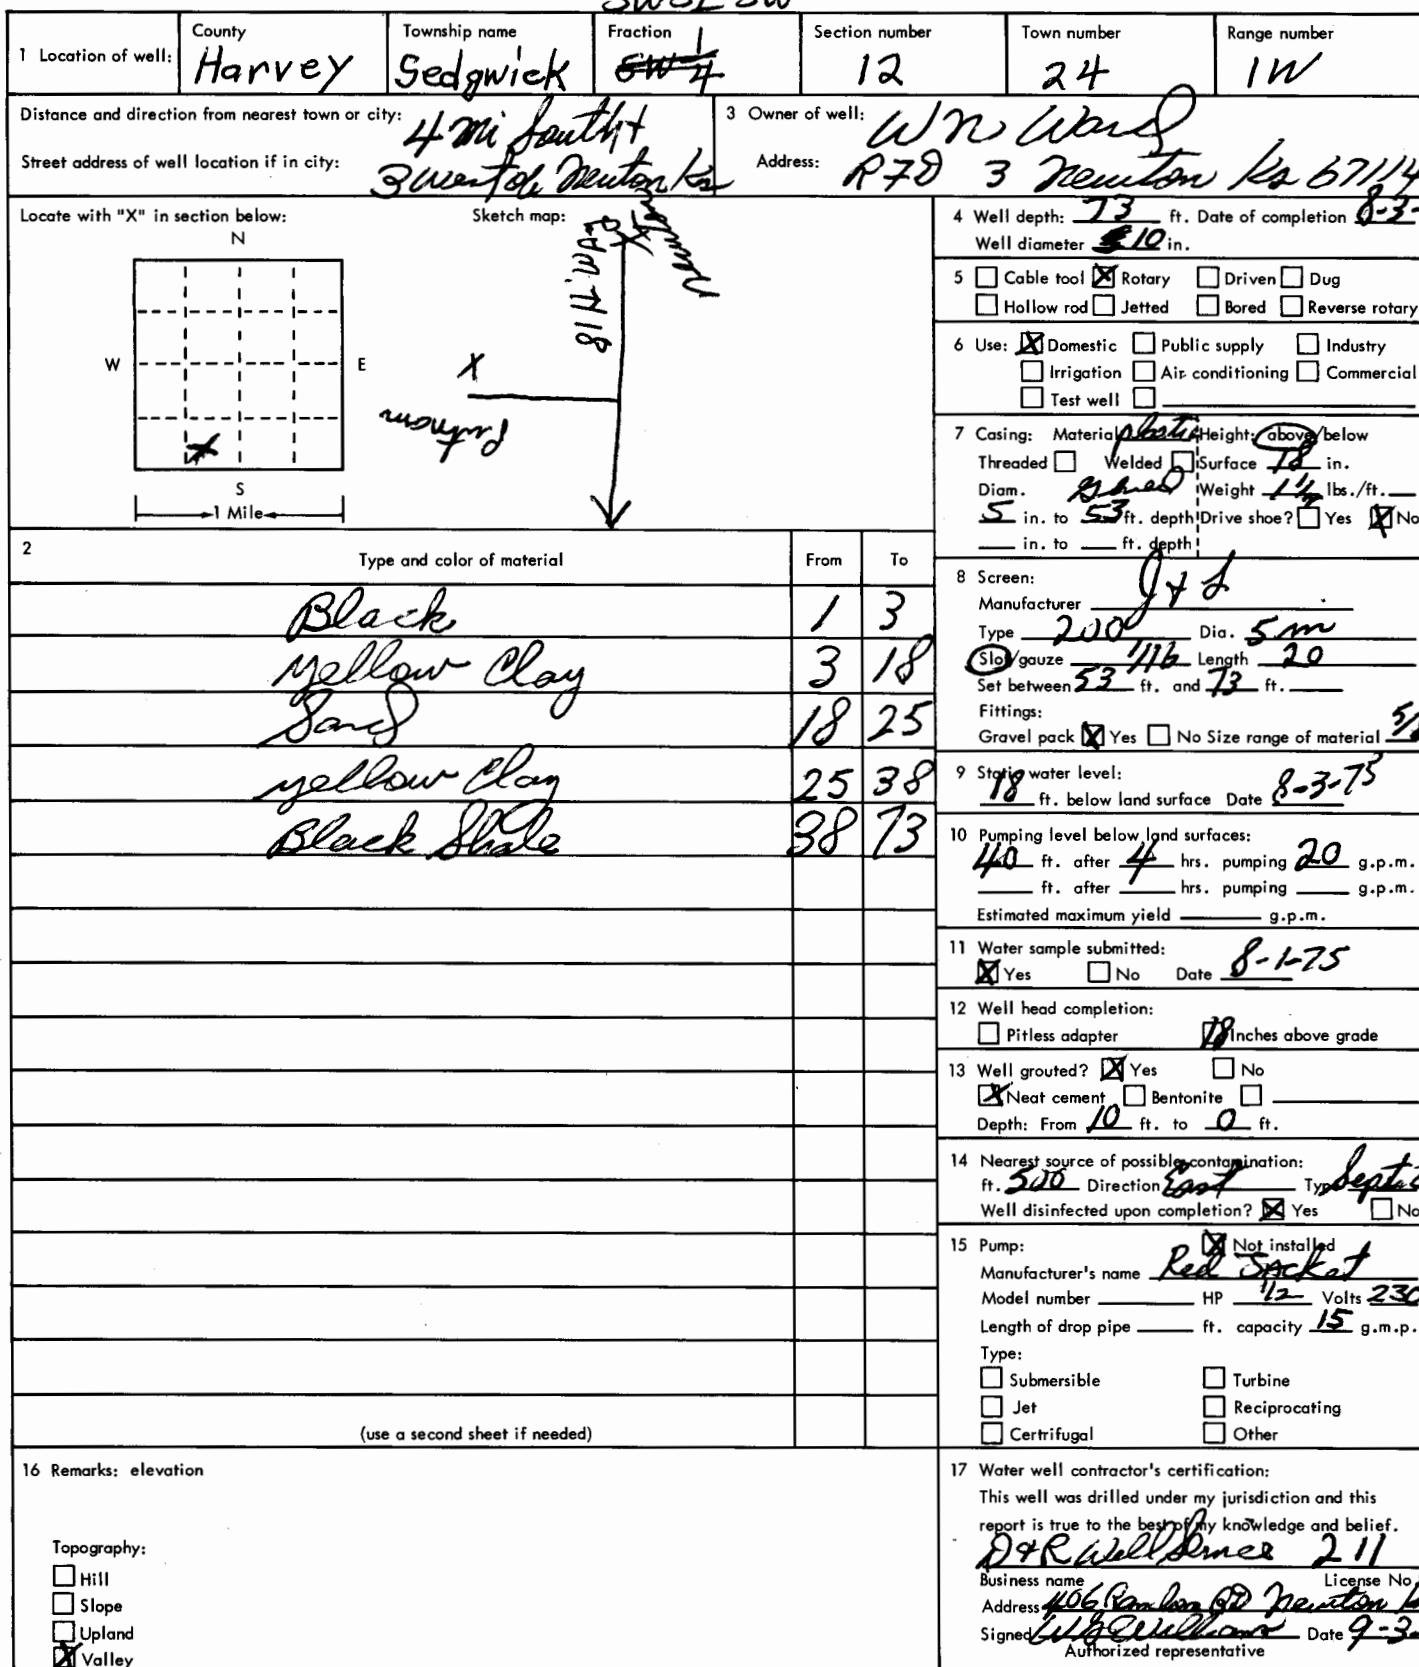 SWSE SW
County Township name Fraction Section number Town number Range number
1 Location of well: Harvey Sedgwick SW 1/4 12 24 1W
Distance and direction from nearest town or city: 4 mi South +
Street address of well location if in city: 3 west of Newton Ks
3 Owner of well: Wn Ward
Address: RFD 3 Newton Ks 67114
Locate with "X" in section below:
N
W E
X
S
1 Mile
Sketch map:
Newton
Hi Way
81
X
Putnam
2 Type and color of material From To
Black 1 3
yellow Clay 3 18
Sand 18 25
yellow Clay 25 38
Black Shale 38 73
(use a second sheet if needed)
4 Well depth: 73 ft. Date of completion 8-3-
Well diameter 10 in.
5 Cable tool X Rotary Driven Dug
Hollow rod Jetted Bored Reverse rotary
6 Use: X Domestic Public supply Industry
Irrigation Air conditioning Commercial
Test well
7 Casing: Material plastic Height: above/below
Threaded Welded Surface 18 in.
Diam. Glued Weight 1 1/2 lbs./ft.
5 in. to 53 ft. depth Drive shoe? Yes X No
in. to ft. depth
8 Screen: J + L
Manufacturer
Type 200 Dia. 5 in
Slot/gauze 1/16 Length 20
Set between 53 ft. and 73 ft.
Fittings:
Gravel pack X Yes No Size range of material 5/
9 Static water level:
18 ft. below land surface Date 8-3-75
10 Pumping level below land surfaces:
40 ft. after 4 hrs. pumping 20 g.p.m.
ft. after hrs. pumping g.p.m.
Estimated maximum yield g.p.m.
11 Water sample submitted:
X Yes No Date 8-1-75
12 Well head completion:
Pitless adapter 18 Inches above grade
13 Well grouted? X Yes No
X Neat cement Bentonite
Depth: From 10 ft. to 0 ft.
14 Nearest source of possible contamination:
ft. 500 Direction East Type Septi
Well disinfected upon completion? X Yes No
15 Pump: X Not installed
Manufacturer's name Red Jacket
Model number HP 1/2 Volts 230
Length of drop pipe ft. capacity 15 g.m.p.
Type:
Submersible Turbine
Jet Reciprocating
Certrifugal Other
16 Remarks: elevation
Topography:
Hill
Slope
Upland
X Valley
17 Water well contractor's certification:
This well was drilled under my jurisdiction and this
report is true to the best of my knowledge and belief.
D+R Well Service 211
Business name License No
Address 406 RD Newton
Signed Williams Date 9-3
Authorized representative